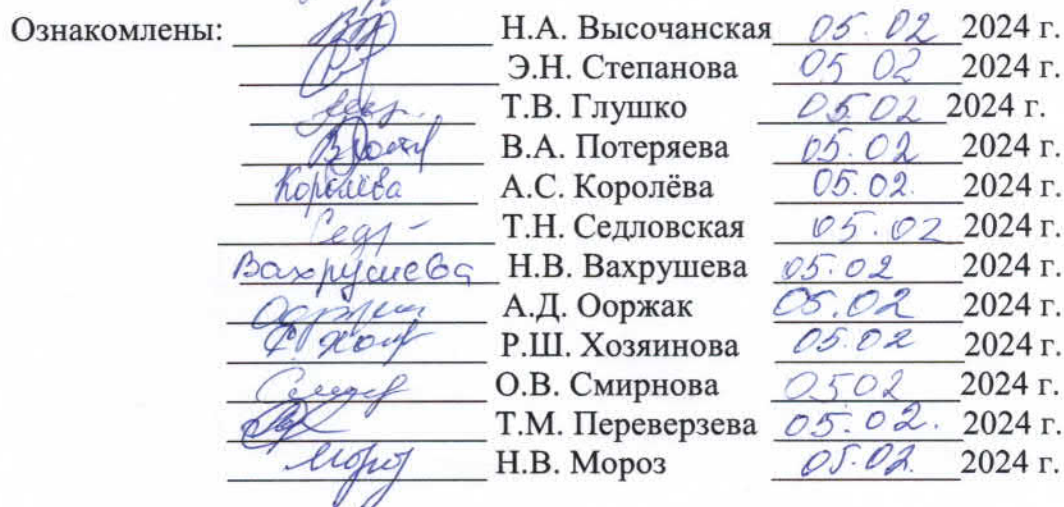 Ознакомлены: Н.А. Высочанская 05.02 2024 г.
Э.Н. Степанова 05 02 2024 г.
Т.В. Глушко 05.02 2024 г.
В.А. Потеряева 05.02 2024 г.
Королёва А.С. Королёва 05.02. 2024 г.
Т.Н. Седловская 05.02 2024 г.
Вахрушева Н.В. Вахрушева 05.02 2024 г.
А.Д. Ооржак 05.02 2024 г.
Р.Ш. Хозяинова 05.02 2024 г.
О.В. Смирнова 0502 2024 г.
Т.М. Переверзева 05.02. 2024 г.
Мороз Н.В. Мороз 05.02. 2024 г.